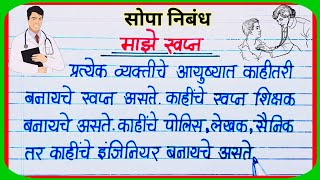 सोपा निबंध
माझे स्वप्न
प्रत्येक व्यक्तीचे आयुष्यात काहीतरी
बनायचे स्वप्न असते. काहींचे स्वप्न शिक्षक
बनायचे असते. काहींचे पोलिस, लेखक, सैनिक
तर काहींचे इंजिनियर बनायचे असते